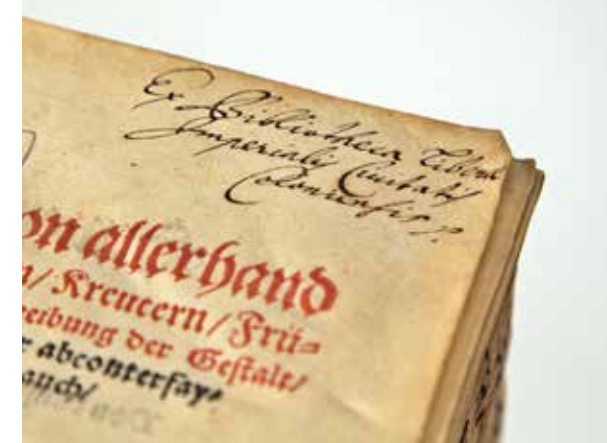 Ex Bibliotheca Liberæ
Imperialis Civitatis
Coloniensis
on allerhand
n/ Kreutern/ Frü⸗
eibung der Gestalt/
r abconterfay⸗
auch/